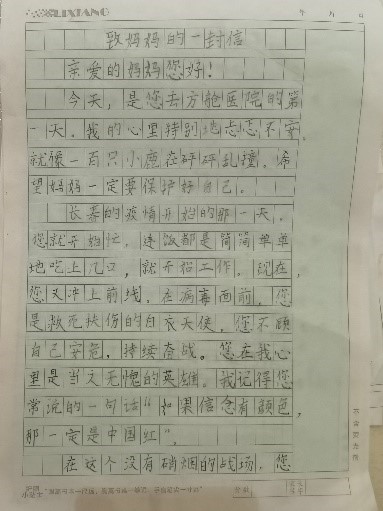 SLIXIANG 年 月 日
致妈妈的一封信
亲爱的妈妈您好!
今天,是您去方舱医院的第
一天。我的心里特别地忐忑不安。
就像一百只小鹿在砰砰乱撞。希
望妈妈一定要保护好自己。
长春的疫情开始的那一天,
您就开始忙,连饭都是简简单单
地吃上几口,就开始工作。现在,
您又冲上前线,在病毒面前,您
是救死扶伤的白衣天使,您不顾
自己安危,持续奋战。您在我心
里是当之无愧的英雄。我记得您
常说的一句话“如果信念有颜色,
那一定是中国红”。
在这个没有硝烟的战场,您